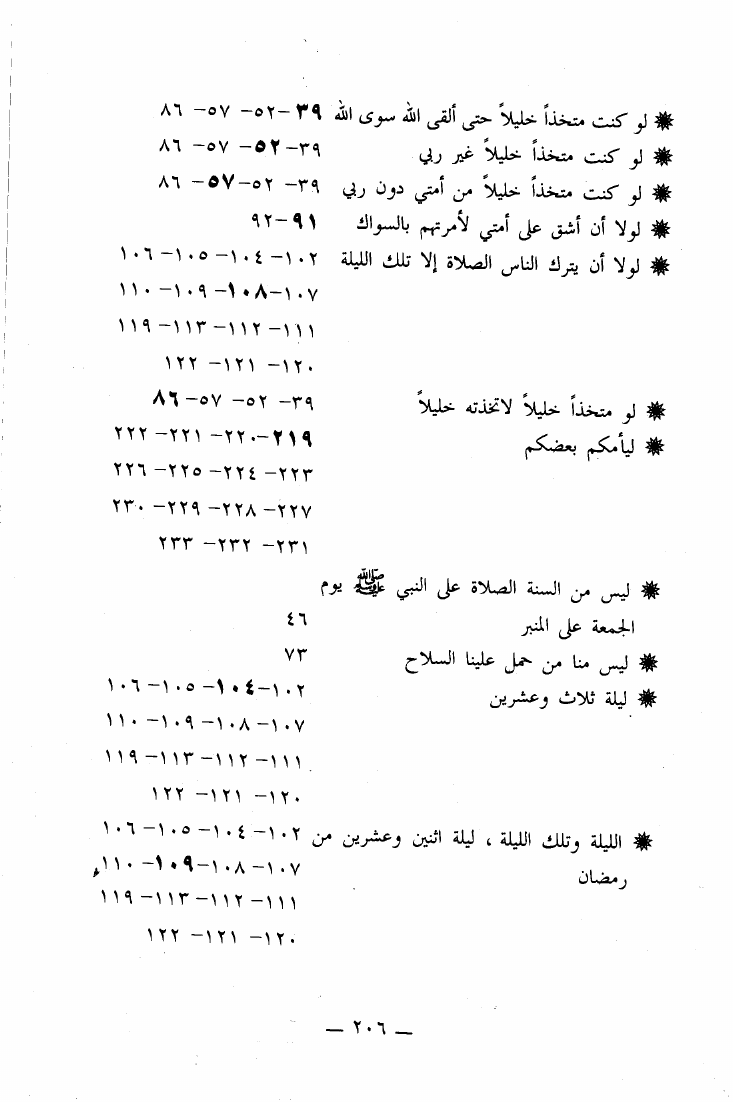 ❋ لو كنت متخذاً خليلاً حتى ألقى الله سوى الله ٣٩-٥٢- ٥٧- ٨٦
❋ لو كنت متخذاً خليلاً غير ربي ٣٩-٥٢- ٥٧- ٨٦
❋ لو كنت متخذاً خليلاً من أمتي دون ربي ٣٩- ٥٢-٥٧- ٨٦
❋ لولا أن أشق على أمتي لأمرتهم بالسواك ٩١-٩٢
❋ لولا أن يترك الناس الصلاة إلا تلك الليلة ١٠٢- ١٠٤- ١٠٥- ١٠٦
١٠٧-١٠٨- ١٠٩- ١١٠
١١١- ١١٢- ١١٣- ١١٩
١٢٠- ١٢١- ١٢٢
❋ لو متخذاً خليلاً لاتخذته خليلاً ٣٩- ٥٢- ٥٧-٨٦
❋ ليأمكم بعضكم ٢١٩-٢٢٠- ٢٢١- ٢٢٢
٢٢٣- ٢٢٤- ٢٢٥- ٢٢٦
٢٢٧- ٢٢٨- ٢٢٩- ٢٣٠
٢٣١- ٢٣٢- ٢٣٣
❋ ليس من السنة الصلاة على النبي ﷺ يوم
الجمعة على المنبر ٤٦
❋ ليس منا من حمل علينا السلاح ٧٣
❋ ليلة ثلاث وعشرين ١٠٢-١٠٤- ١٠٥- ١٠٦
١٠٧- ١٠٨- ١٠٩- ١١٠
١١١- ١١٢- ١١٣- ١١٩
١٢٠- ١٢١- ١٢٢
❋ الليلة وتلك الليلة ، ليلة اثنين وعشرين من ١٠٢- ١٠٤- ١٠٥- ١٠٦
رمضان ١٠٧- ١٠٨-١٠٩- ١١٠
١١١- ١١٢- ١١٣- ١١٩
١٢٠- ١٢١- ١٢٢
— ٢٠٦ —